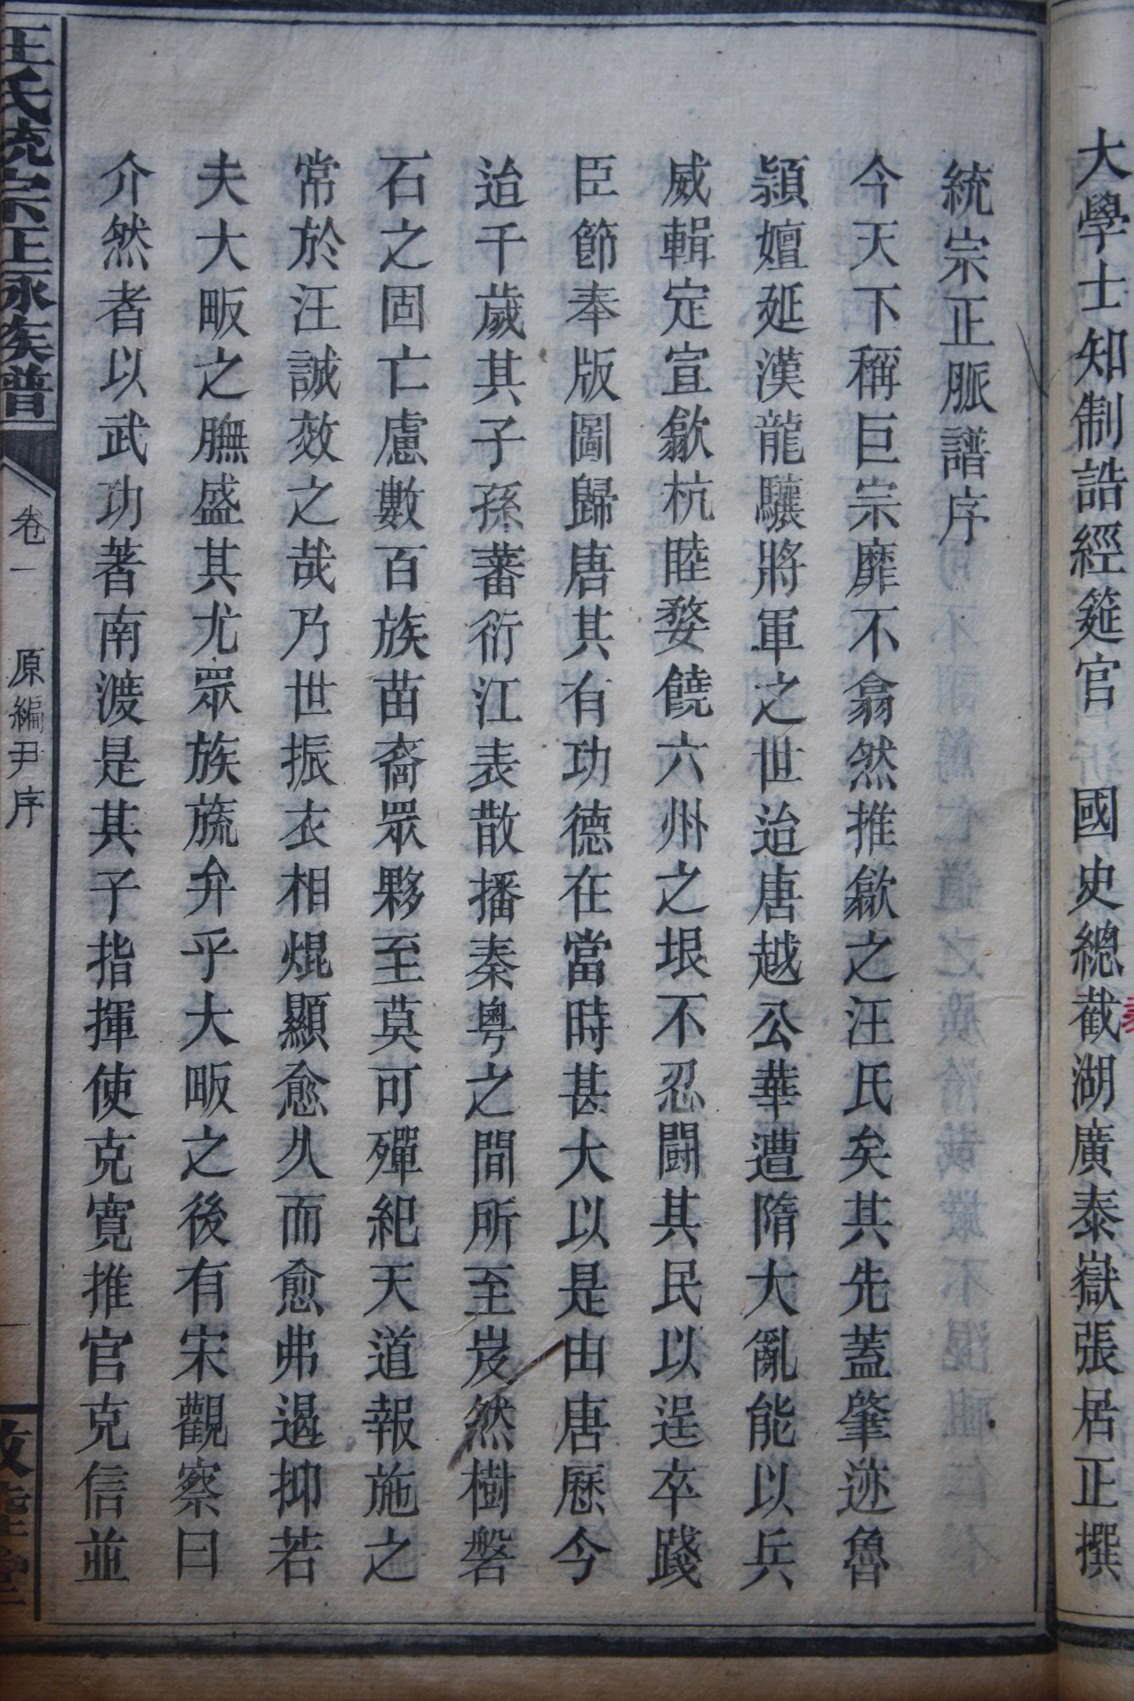 大學士知制誥經筵官 國史總裁湖廣泰嶽張居正撰
統宗正脈譜序
今天下稱巨宗靡不翕然推歙之汪氏矣其先蓋肇迹魯
潁嬗延漢龍驤將軍之世迨唐越公華遭隋大亂能以兵
威輯定宣歙杭睦婺饒六州之垠不忍鬪其民以逞卒踐
臣節奉版圖歸唐其有功德在當時甚大以是由唐歷今
迨千歲其子孫蕃衍江表散播秦粵之間所至岌然樹磐
石之固亡慮數百族苗裔眾夥至莫可殫紀天道報施之
常於汪誠效之哉乃世振衣相焜顯愈久而愈弗遏抑若
夫大畈之膴盛其尤眾族蓅弁乎大畈之後有宋觀察曰
介然者以武功著南渡是其子指揮使克寬推官克信並
汪氏統宗正脉族譜
卷一
原編尹序
一
敦睦堂